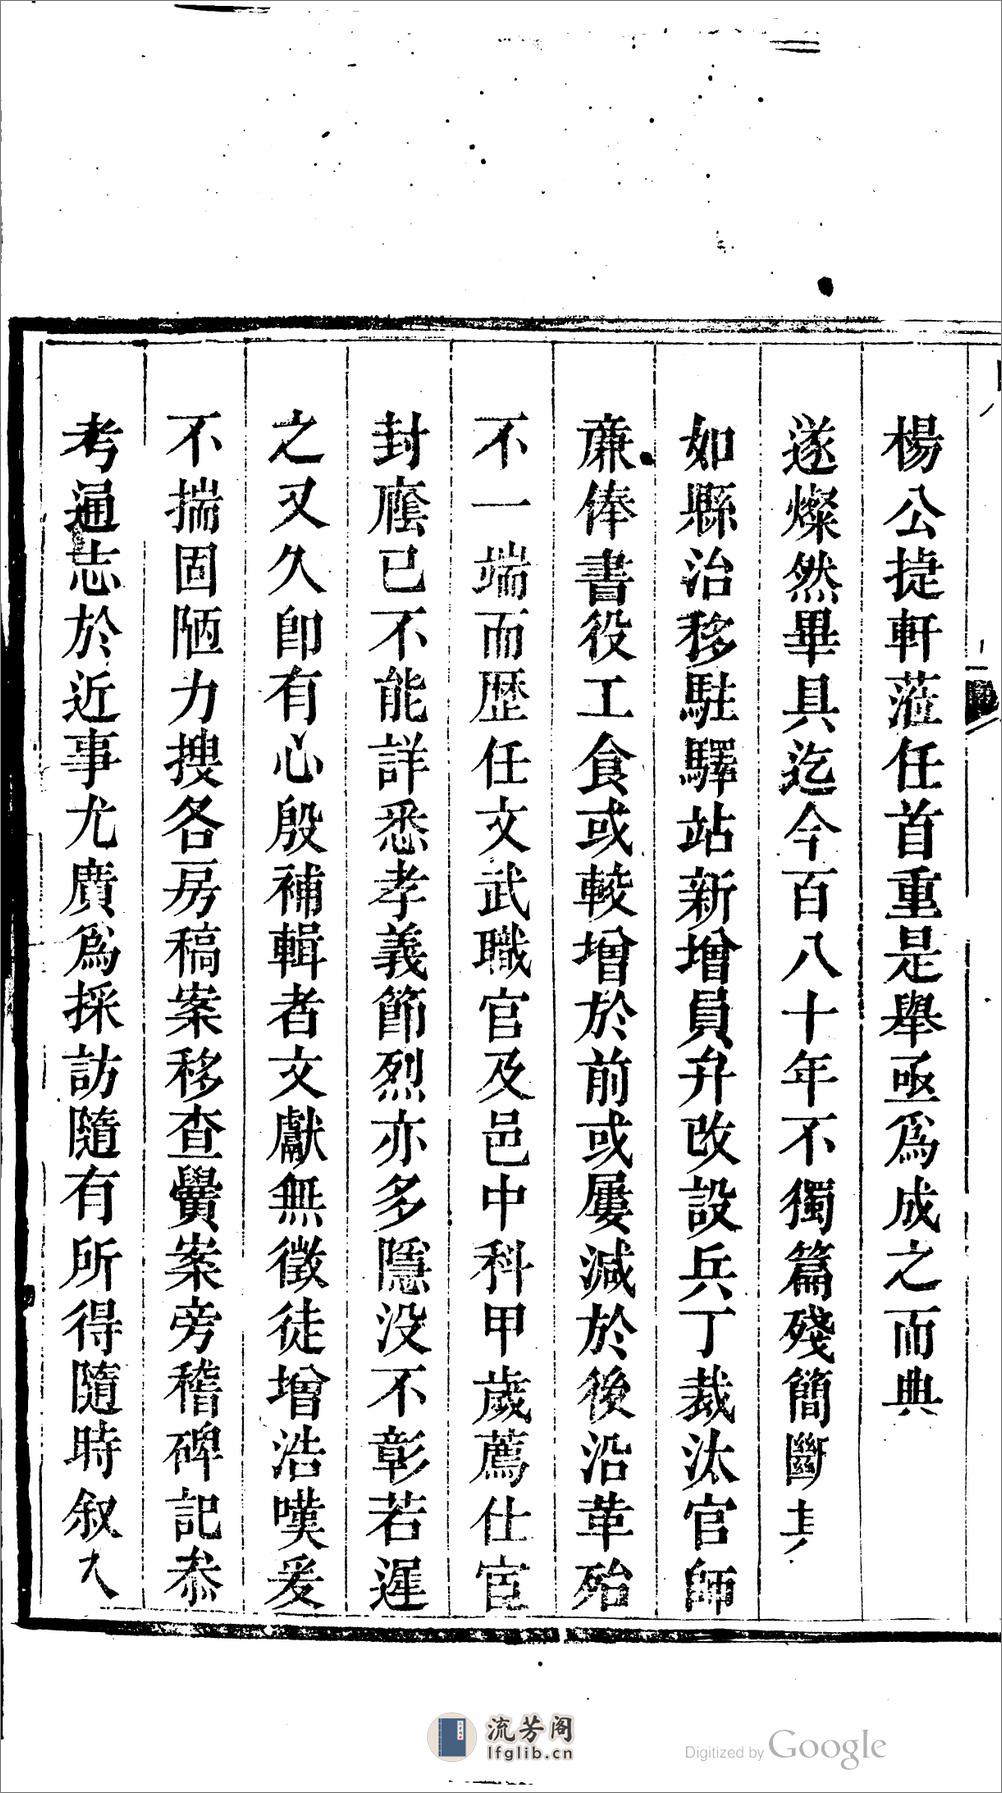 楊公捷軒蒞任首重是舉亟爲成之而典
遂燦然畢具迄今百八十年不獨篇殘簡斷
如縣治移駐驛站新增員弁改設兵丁裁汰官師
亷俸書役工食或較增於前或屢減於後沿革殆
不一端而歴任文武職官及邑中科甲歲薦仕宦
封廕已不能詳悉孝義節烈亦多隱没不彰若遲
之又久卽有心殷補輯者文獻無徵徒增浩嘆爰
不揣固陋力搜各房稿案移查黌案旁稽碑記叅
考通志於近事尤廣爲採訪隨有所得隨時叙入
流芳阁
lfglib.cn
Digitized by Google